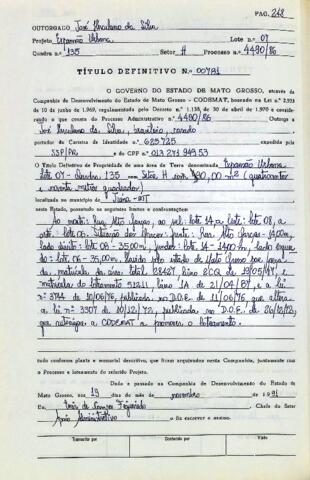 PAG. 248
OUTORGADO José Herculano da Silva
Projeto Expansão Urbana Lote n.º 07
Quadra n.º 135 Setor H Processo n.º 4490/86
TÍTULO DEFINITIVO N.º 00781
O GOVERNO DO ESTADO DE MATO GROSSO, através da
Companhia de Desenvolvimento do Estado de Mato Grosso - CODEMAT, baseado na Lei n.º
10 de junho de 1969, regulamentada pelo Decreto n.º 1.138, de 20 de abril de 1970 e conside-
rando o que consta do Processo Administrativo n.º 4490/86 Outorga a
José Herculano da Silva, brasileiro, casado
portador da Carteira de Identidade n.º 625725 expedida pela
SSP/PR e CPF n.º 013 271 949 53
O Título Definitivo de Propriedade de uma área de Terra denominada Expansão Urbana
Lote 07 - Quadra 135 - Setor H com 490,00 m² (quatrocentos
e noventa metros quadrados)
localizada no município de Juina - MT
neste Estado, possuindo os seguintes limites e confrontações:
Ao norte: Rua Alto Garças, ao sul: lote 14, a leste: lote 08, a
oeste: lote 06. Situação dos Marcos: frente: Rua Alto Garças - 14,00m,
lado direito: lote 08 - 35,00m, fundos: lote 14 - 14,00m, lado esquer-
do: lote 06 - 35,00m. Havido pelo estado de Mato Grosso por força
da matrícula da área total 28427, livro 2CQ de 19/05/87, e
matrícula do loteamento 51211, livro 1A de 21/04/87, e a lei
nº 3744 de 10/06/76, publicada no D.O.E. de 11/06/76 que altera
a lei nº 3307 de 10/12/72, publicada no D.O.E. de 26/12/72,
que autoriza a CODEMAT a promover o loteamento.
tudo conforme planta e memorial descritivo, que ficam arquivados nesta Companhia, juntamente com
o Processo e loteamento do referido Projeto.
Dado e passado na Companhia de Desenvolvimento do Estado de
Mato Grosso, aos 19 dias do mês de novembro de 1991
Eu, de Campos Figueiredo Chefe do Setor
Apoio Administrativo o fiz escrever e assino.
Transcrito por Conferido por Visto